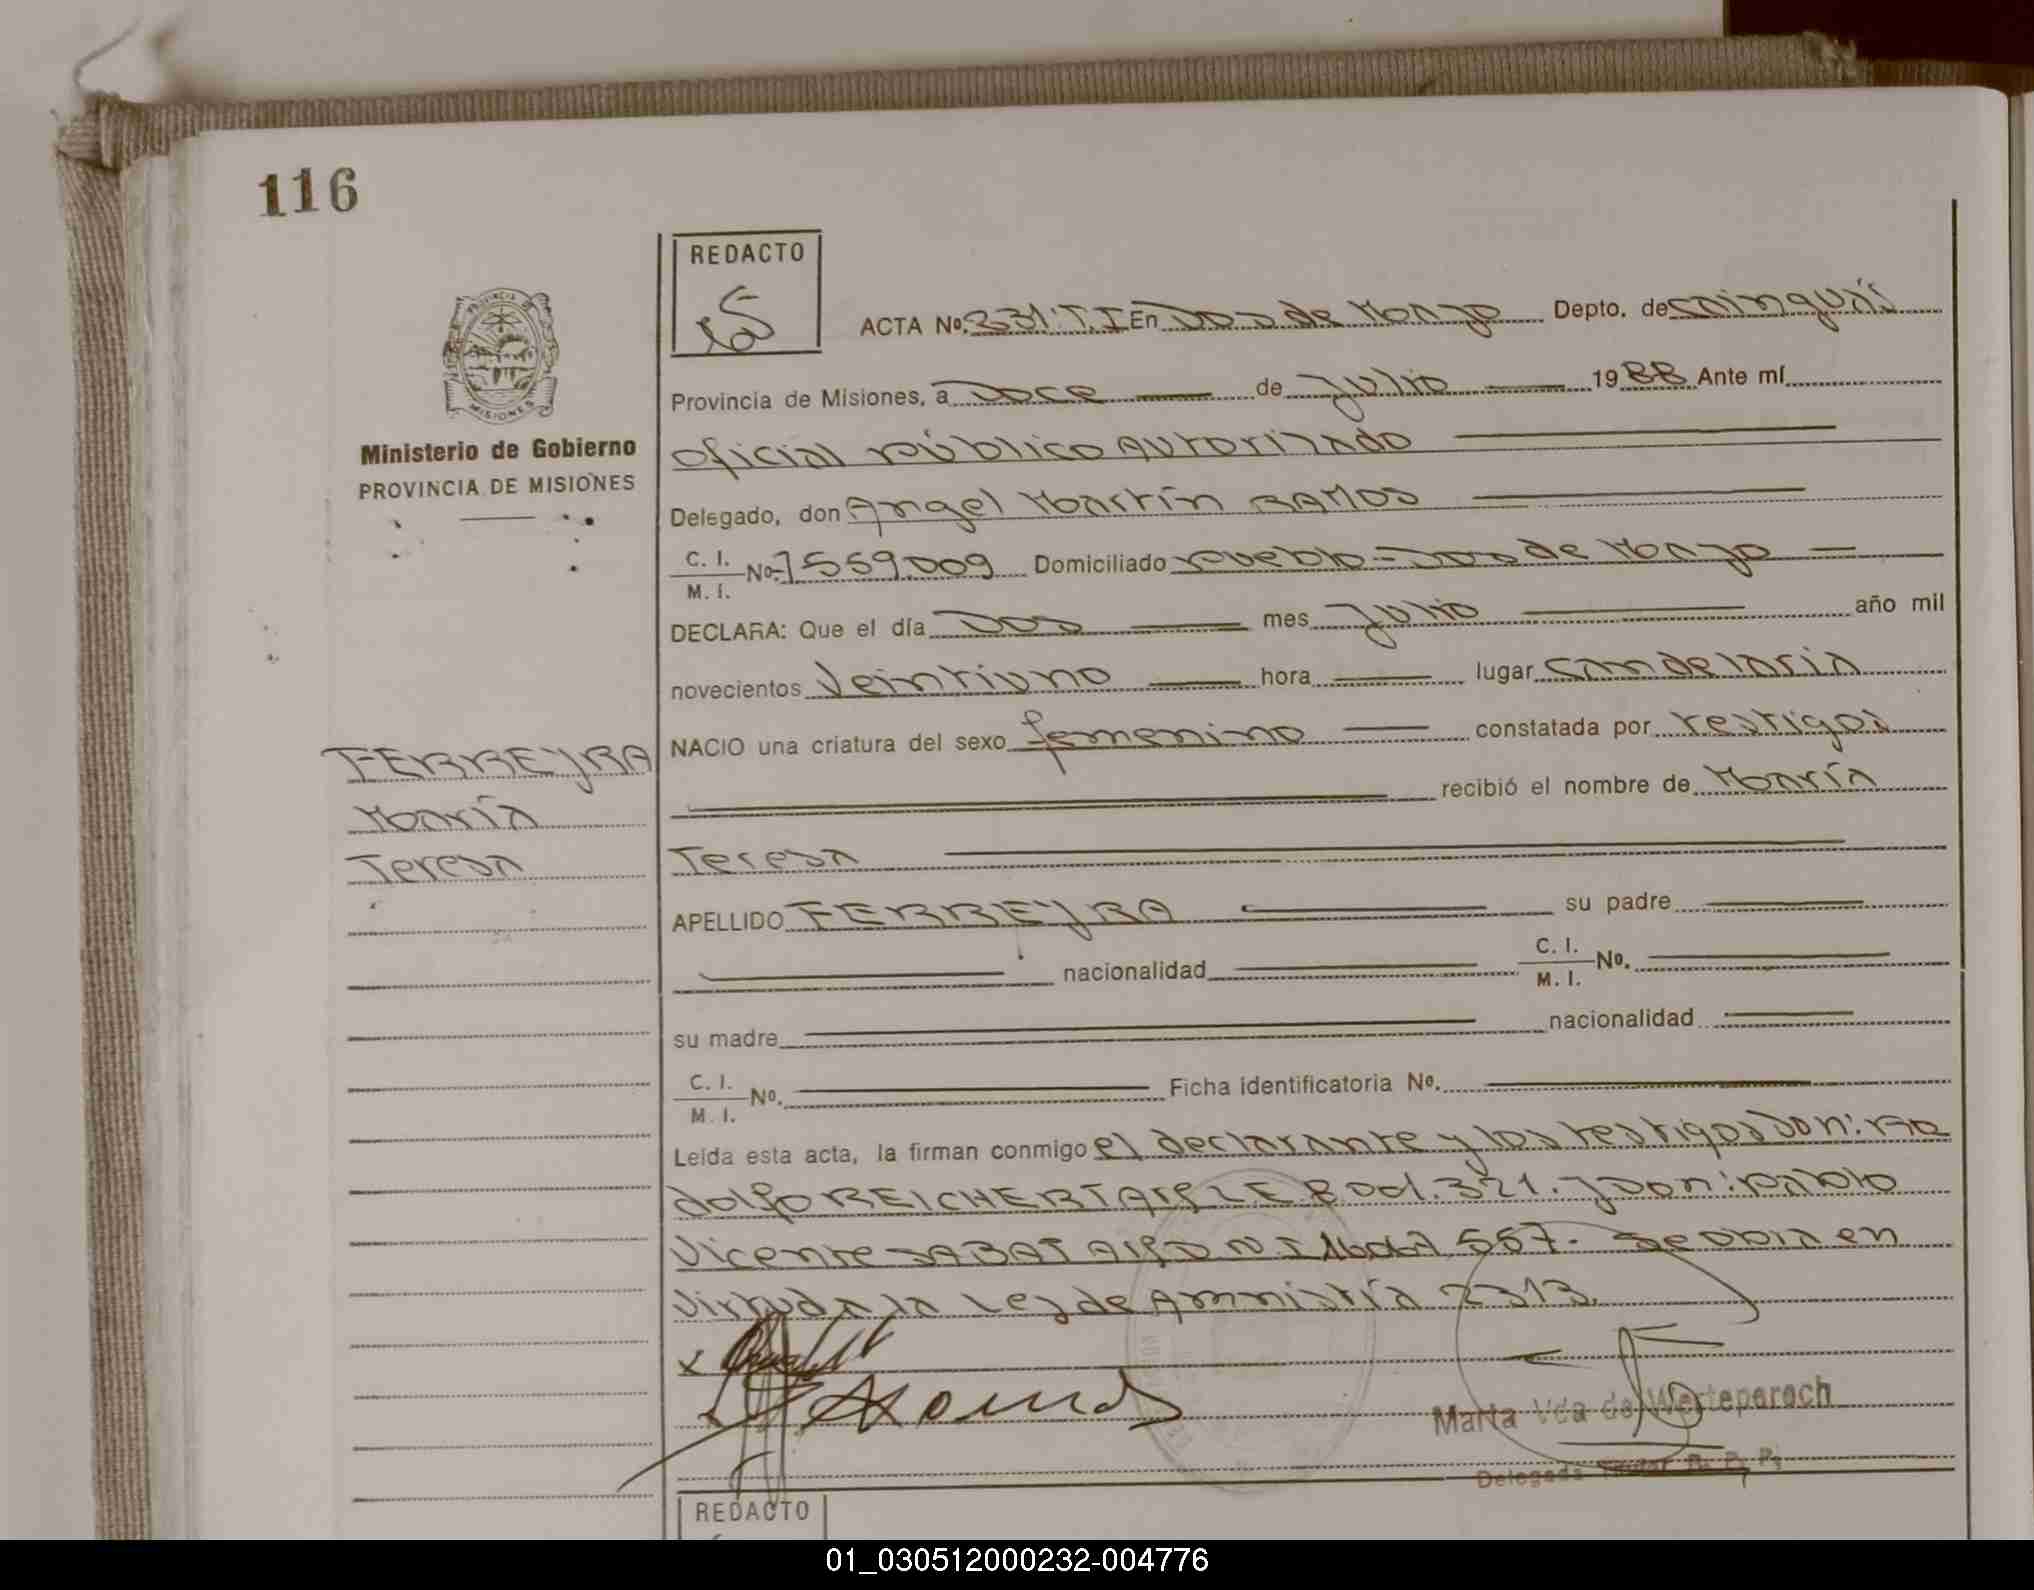 116
REDACTO
ACTA Nº. 331. T. I En Dos de Mayo Depto. de Cainguás
Provincia de Misiones, a Doce de Julio 1988 Ante mí
Oficial Público Autorizado
Ministerio de Gobierno
PROVINCIA DE MISIONES
Delegado, don Angel Martín RAMOS
C. I.
M. I. Nº 7559.009 Domiciliado Pueblo-Dos de Mayo
DECLARA: Que el día Dos mes Julio año mil
novecientos Veintiuno hora lugar Candelaria
NACIO una criatura del sexo femenino constatada por testigos
recibió el nombre de María
FERREYRA
María
Teresa
Teresa
APELLIDO FERREYRA su padre
nacionalidad C. I.
M. I. Nº.
su madre nacionalidad
C. I.
M. I. Nº. Ficha identificatoria Nº.
Leída esta acta, la firman conmigo el declarante y los testigos Don: Ro
dolfo REICHERT 321. y Don: Pablo
Vicente SABAT 557. Se obra en
Virtud a la Ley de Amnistía 2313.
Marta Vda de Werteparoch
Delegada Titular R. P. P.
REDACTO
01_030512000232-004776